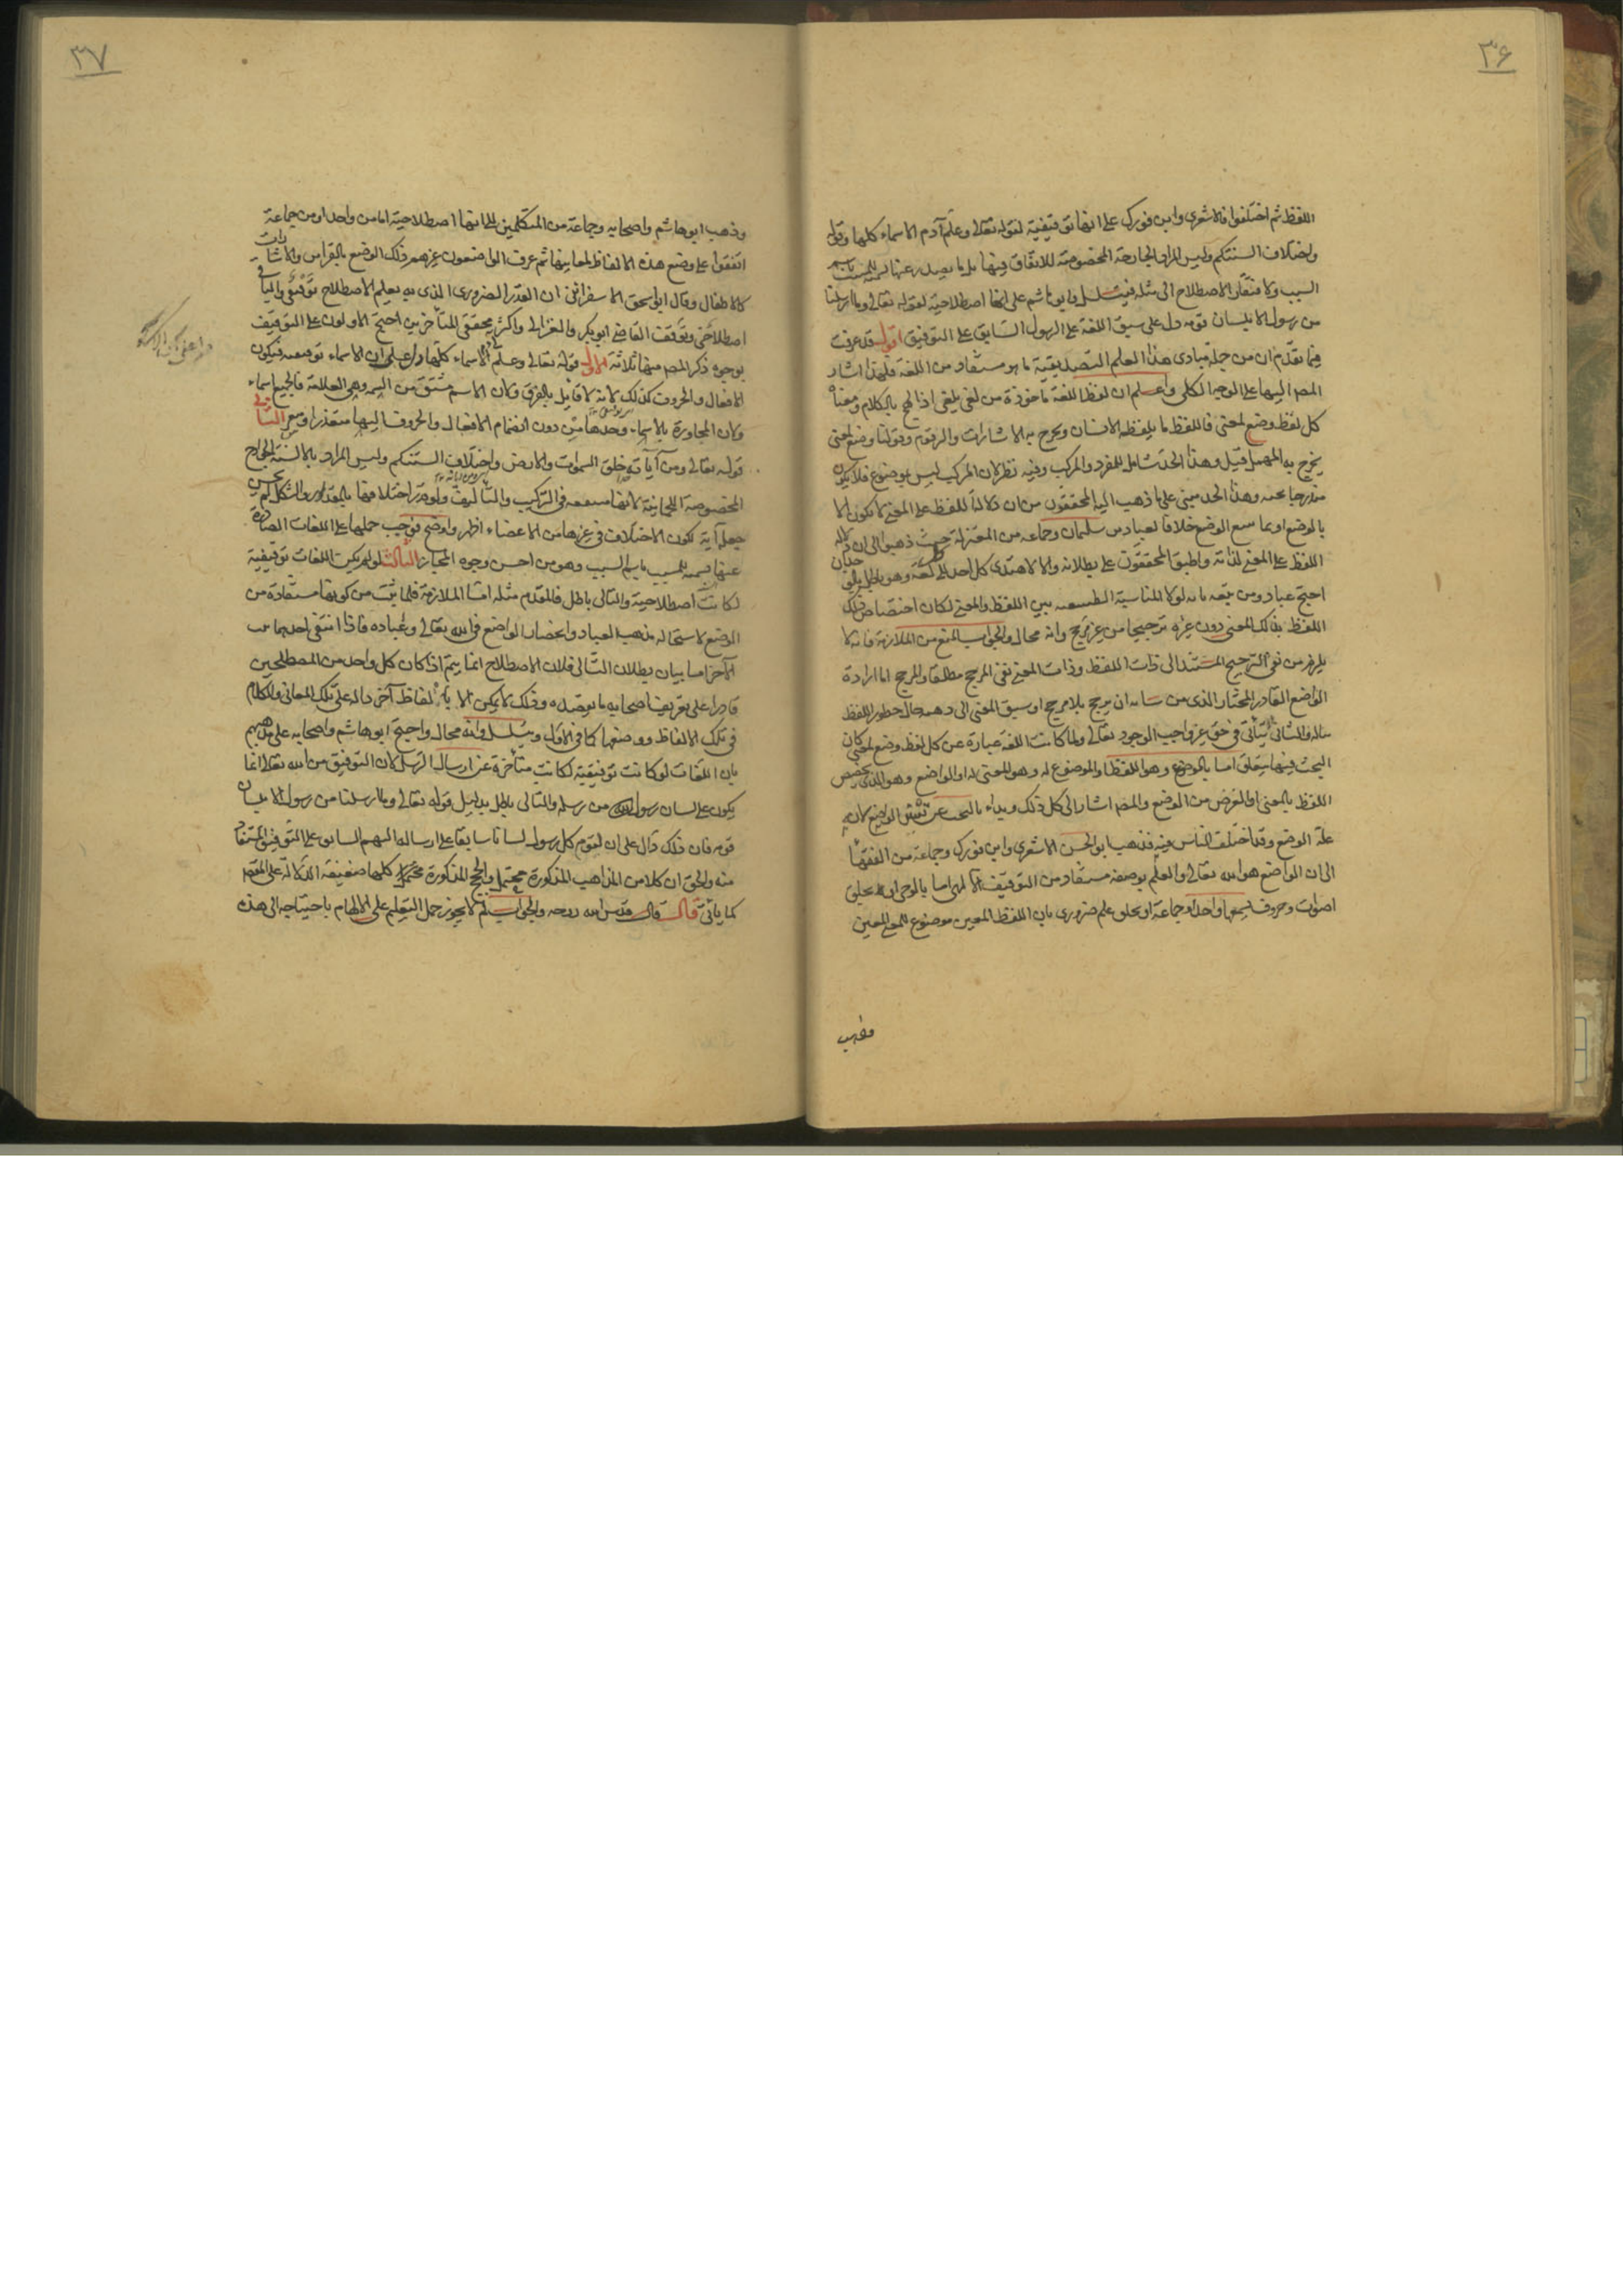 ٣۶
اللفظ ثم اختلفوا فالاشعرى وابن فورك على انها توقيفية لقوله تعالى وعلّم آدم الاسماء كلها وقوله
واختلاف السنتكم وليس المراد الجارحة المخصوصة للاتفاق فيها بل ما يصدر عنها تسمية للمسبب باسم
السبب ولافتقار الاصطلاح الى مثله فيتسلسل وابو هاشم على انها اصطلاحية لقوله تعالى وما ارسلنا
من رسول الا بلسان قومه دل على سبق اللغة على الرسول السابق على التوقيف اقول قد عرفت
فيما تقدّم ان من جملة مبادى هذا العلم التصديقية ما هو مستفاد من اللغة فلهذا اشار
المصر اليها على الوجه الكلى واعلم ان لفظ اللغة ماخوذة من لغى يلغى اذا لهج بالكلام ومعناه
كل لفظ وضع لمعنى فاللفظ ما يلفظه الانسان ويخرج به الاشارات والرقوم وقولنا وضع لمعنى
يخرج به المهمل قيل وهذا الحدّ شامل للمفرد والمركب وفيه نظر لان المركب ليس بموضوع فلا يكون
مندرجا تحته وهذا الحد مبنى على ما ذهب اليه المحققون من ان دلالة اللفظ على المعنى لا تكون الا
بالوضع او بما يتبع الوضع خلافا لعباد بن سليمان وجماعة من المعتزلة حيث ذهبوا الى ان دلالة
اللفظ على المعنى لذاته واطبق المحققون على بطلانه والا لاهتدى كل احد الى كل لغة وهو باطل
احتج عباد ومن تبعه بانه لولا المناسبة الطبيعية بين اللفظ والمعنى لكان اختصاص ذلك
اللفظ بذلك المعنى دون غيره ترجيحا من غير مرجح وانه محال والجواب المنع من الملازمة فانه لا
يلزم من نفى الترجيح المستند الى ذات اللفظ وذات المعنى نفى المرجح مطلقا والمرجح اما ارادة
الواضع القادر المختار الذى من شانه ان يرجح بلا مرجح او سبق المعنى الى ذهنه حال خطور اللفظ
بباله والثانى لا يتأتى فى حق غير واجب الوجود تعالى ولما كانت اللغة عبارة عن كل لفظ وضع لمعنى كان
البحث فيها يتعلق اما بالموضوع وهو اللفظ او الموضوع له وهو المعنى له او الواضع وهو الذى يخصص
اللفظ بالمعنى او الغرض من الوضع والمصر اشار الى كل ذلك وبداء بالبحث عن الواضع لانه
علّة الوضع وقد اختلف الناس فيه فذهب ابو الحسن الاشعرى وابن فورك وجماعة من الفقهاء
الى ان الواضع هو الله تعالى والعلم بوضعه مستفاد من التوقيف الالهى اما بالوحى او بخلق
اصوات وحروف يسمعها واحد او جماعة او بخلق علم ضرورى بان اللفظ المعين موضوع للمعنى المعين
وذهب
٣٧
وذهب ابو هاشم واصحابه وجماعة من المتكلمين الى انها اصطلاحية اما من واحد او من جماعة
اتفقوا على وضع هذه الالفاظ لمعانيها ثم عرف الواضعون غيرهم ذلك الوضع بالقراين والاشارات
كالاطفال وقال ابو اسحق الاسفراينى ان القدر الضرورى الذى به يعلم الاصطلاح توقيفى والباقى
اصطلاحى وتوقف القاضى ابو بكر والغزالى واكثر محققى المتأخرين احتج الاولون على التوقيف
بوجوه ذكر المصر منها ثلاثة الاول قوله تعالى وعلّم آدم الاسماء كلها دل على ان الاسماء توقيفية فيكون
الافعال والحروف كذلك لانه لا قايل بالفرق ولان الاسم مشتق من السمة وهى العلامة فالجميع اسماء
ولان المحاورة بالاسماء وحدها من دون انضمام الافعال والحروف اليها متعذرا ومتعسر الثانى
قوله تعالى ومن آياته خلق السموات والارض واختلاف السنتكم وليس المراد بالالسنة الجوارح
المخصوصة اللحمانية لانها متفقة فى التركيب والتأليف ولو قدر اختلافها بالمقدار والشكل لم يحسن
جعله آية لكون الاختلاف فى غيرها من الاعضاء اظهر واوضح فوجب حملها على اللغات الصادرة
عنها تسمية للمسبب باسم السبب وهو من احسن وجوه المجاز الثالث لو لم يكن اللغات توقيفية
لكانت اصطلاحية والتالى باطل فالمقدم مثله امّا الملازمة فلما ثبت من كونها مستفادة من
الوضع لاستحالة مذهب العباد وانحصار الواضع فى الله تعالى وعباده فاذا انتفى احدهما ثبت
الآخر اما بيان بطلان التّالى فلان الاصطلاح انما يتم اذا كان كل واحد من المصطلحين
قادرا على تعريف اصحابه ما يقصده وذلك لا يمكن الا بالفاظ آخر دالة على تلك المعانى والكلام
فى تلك الالفاظ ووضعها كما فى الاول ويتسلسل وانه محال واحتج ابو هاشم واصحابه على مذهبهم
بان اللغات لو كانت توقيفية لكانت متأخرة عن ارسال الرسل لان التوقيف من الله تعالى انما
يكون على لسان رسول من رسله والتالى باطل بدليل قوله تعالى وما ارسلنا من رسول الا بلسان
قومه فان ذلك دال على ان لقوم كل رسول لسانا سابقا على ارساله اليهم السابق على التوقيف المستفاد
منه والحق ان كلا من المذاهب المذكورة محتمل والحجج المذكورة كلها ضعيفة الدلالة على القطع
كما ياتى قال قال قدّس الله روحه والجواب لم لا يجوز حمل التعليم على الالهام باحتياجه الى هذه